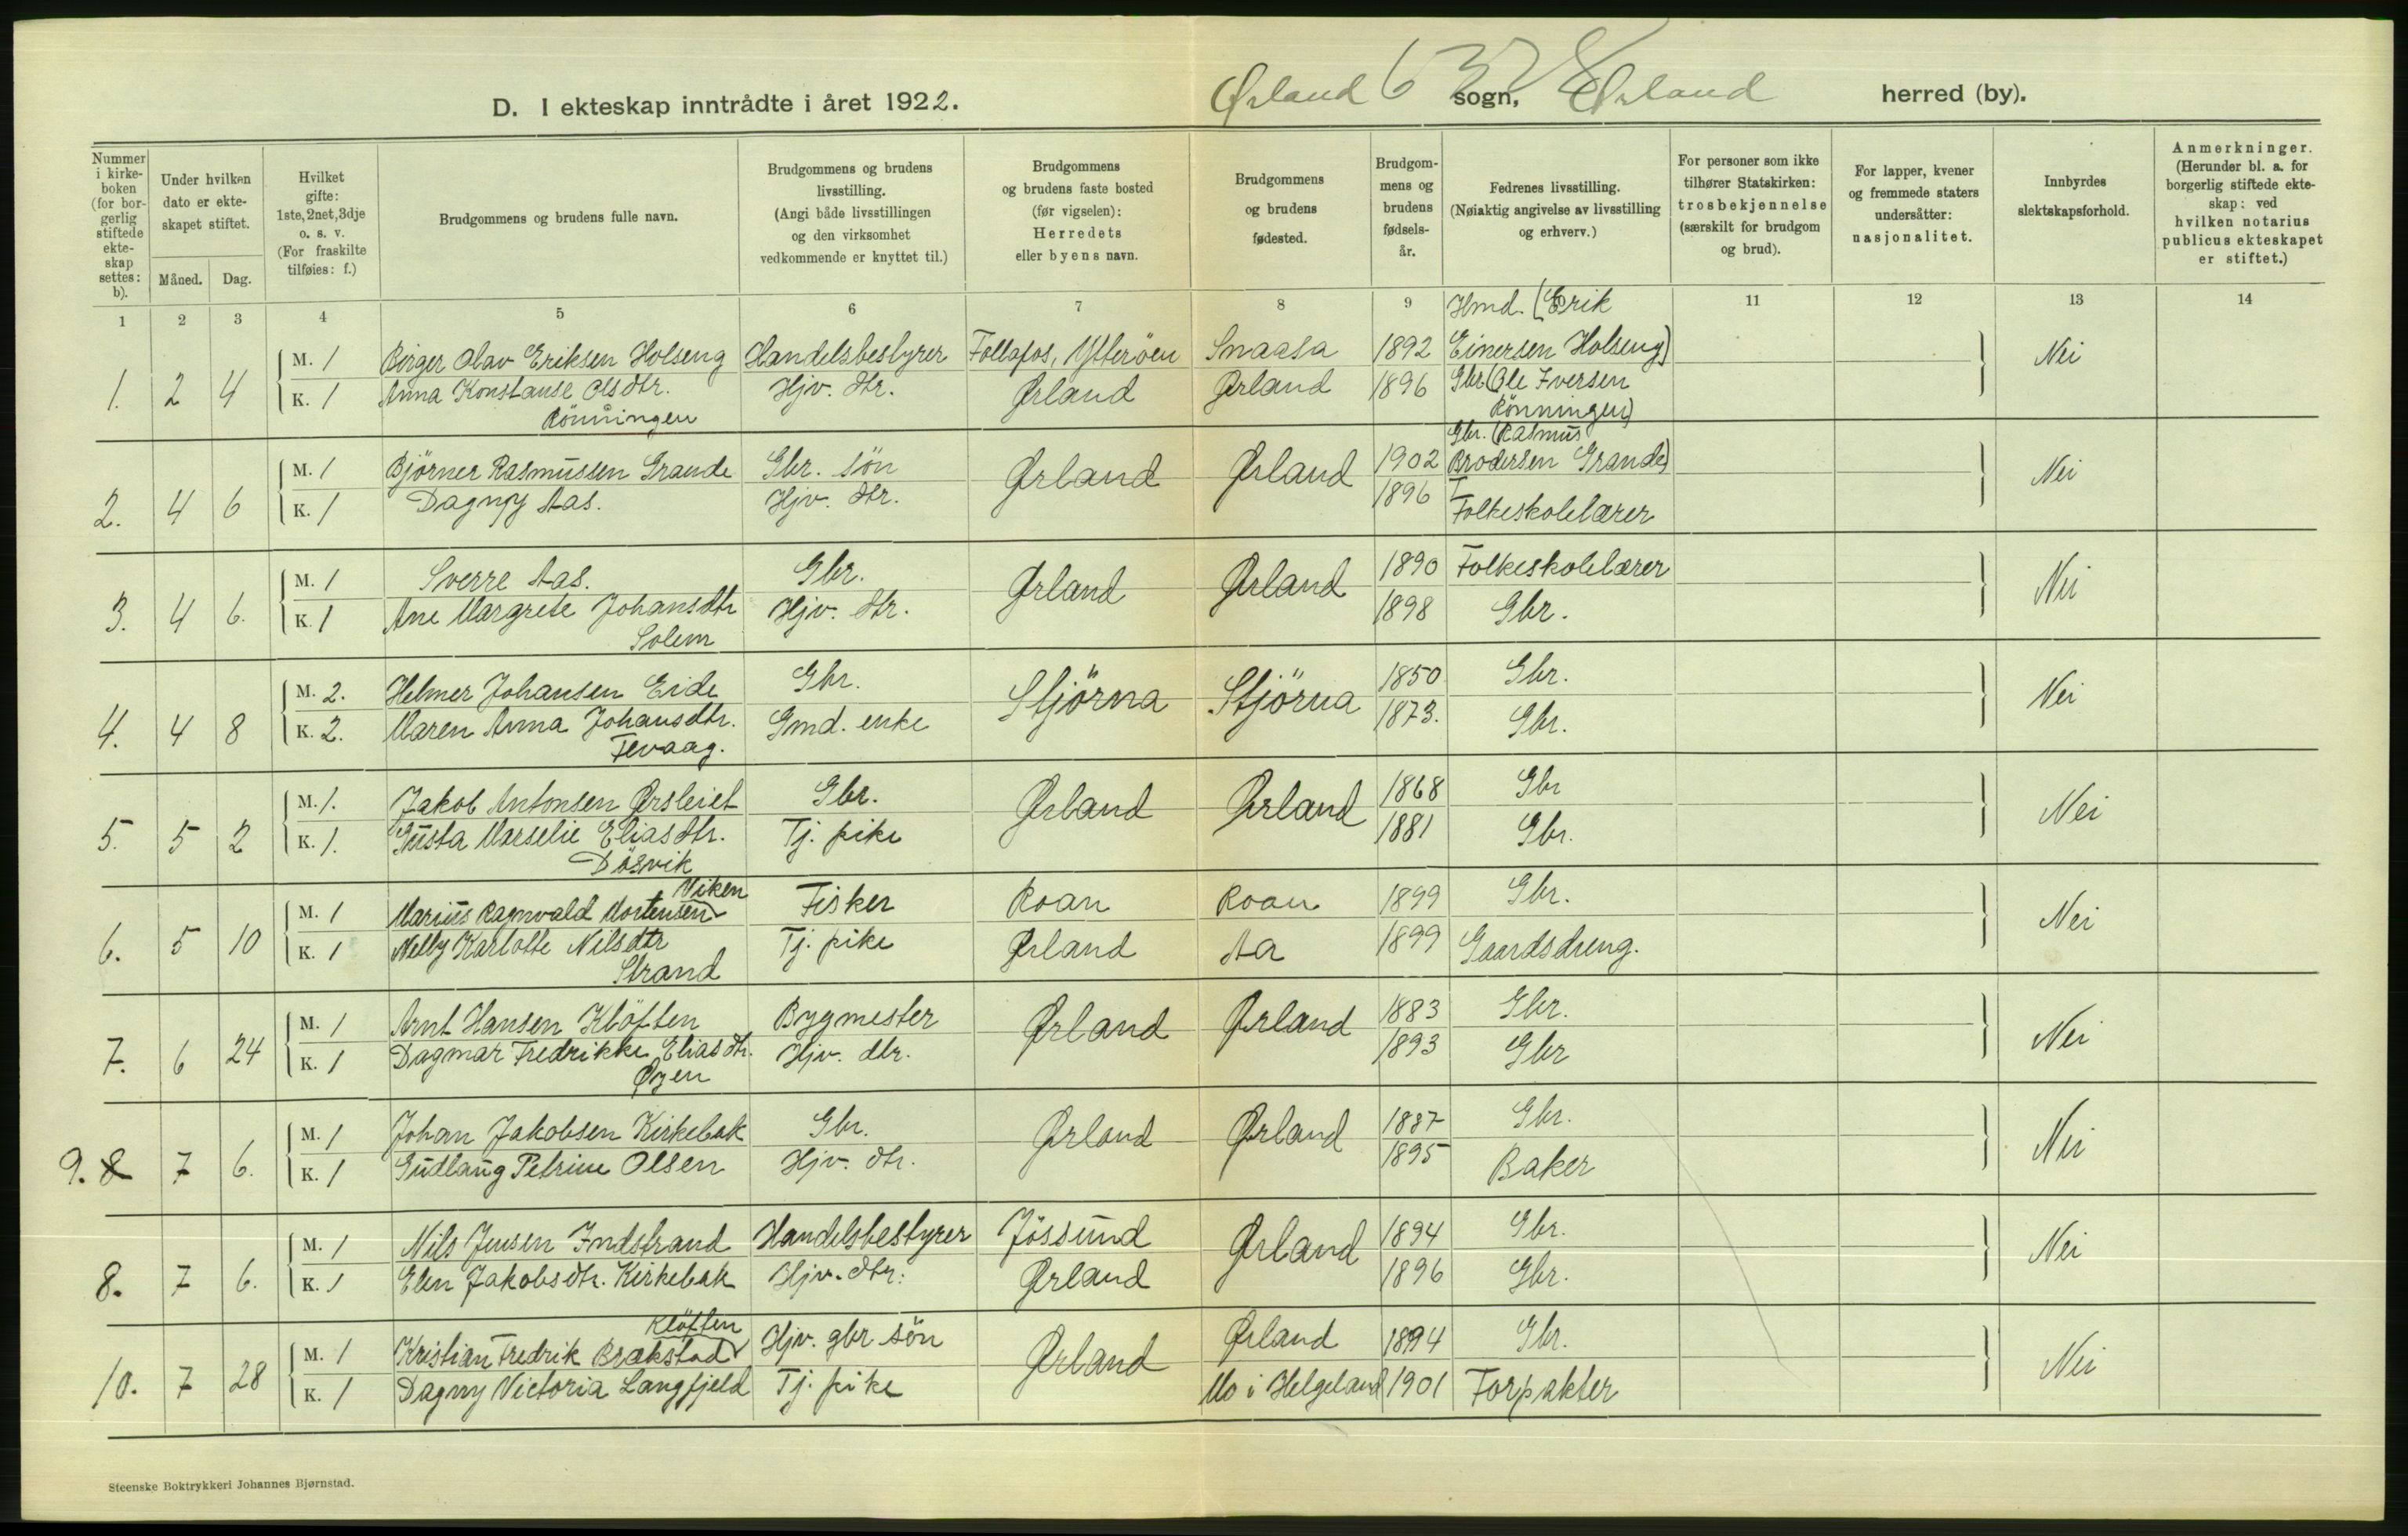 D. I ekteskap inntrådte i året 1922.
Ørland sogn, Ørland herred (by).
Nummer i kirke-boken (for bor-gerlig stiftede ekte-skap settes: b).
Under hvilken dato er ekte-skapet stiftet.
Måned. Dag.
Hvilket gifte: 1ste, 2net, 3dje o. s. v. (For fraskilte tilføies: f.)
Brudgommens og brudens fulle navn.
Brudgommens og brudens livsstilling. (Angi både livsstillingen og den virksomhet vedkommende er knyttet til.)
Brudgommens og brudens faste bosted (før vigselen): Herredets eller byens navn.
Brudgommens og brudens fødested.
Brudgom-mens og brudens fødsels-år.
Fedrenes livsstilling. (Nøiaktig angivelse av livsstilling og erhverv.)
For personer som ikke tilhører Statskirken: trosbekjennelse (særskilt for brudgom og brud).
For lapper, kvener og fremmede staters undersåtter: nasjonalitet.
Innbyrdes slektskapsforhold.
Anmerkninger. (Herunder bl. a. for borgerlig stiftede ekte-skap: ved hvilken notarius publicus ekteskapet er stiftet.)
1 2 3 4 5 6 7 8 9 11 12 13 14
Hmd. (Erik
1. 2 4 M. 1 Birger Olav Eriksen Holseng Handelsbestyrer Follafos, Ytteröen Snaasa 1892 Einersen Holseng) Nei
K. 1 Anna Konstanse Olsdtr. Hjv. dtr. Ørland Ørland 1896 Gbr. (Ole Iversen
Rönningen Rönningen)
Gbr. (Rasmus
2. 4 6 M. 1 Björner Rasmussen Grande Gbr. sön Ørland Ørland 1902 Brodersen Grande) Nei
K. 1 Dagny Aas. Hjv. dtr. 1896 Folkeskolelærer
3. 4 6. M. 1 Sverre Aas. Gbr. Ørland Ørland 1890 Folkeskolelærer Nei
K. 1 Ane Margrete Johansdtr Hjv. dtr. 1898 Gbr.
Solem
4. 4 8 M. 2. Helmer Johansen Eide Gbr. Stjörna Stjörna 1850 Gbr. Nei
K. 2. Maren Anna Johansdtr. Gmd. enke 1873. Gbr.
Fevaag.
5. 5 2 M. 1. Jakob Antonsen Ørsleiet Gbr. Ørland Ørland 1868 Gbr Nei
K. 1. Gusta Marselie Eliasdtr. Tj. pike 1881 Gbr.
Dösvik
Viken
6. 5 10 M. 1 Marius Ragnvald Mortensen Fisker Roan Roan 1899 Gbr. Nei
K. 1 Nelly Karlotte Nilsdtr Tj. pike Ørland Aa 1899 Gaardsdreng.
Strand
7. 6 24 M. 1 Arnt Hansen Klöften Bygmester Ørland Ørland 1883 Gbr. Nei
K. 1 Dagmar Fredrikke Eliasdtr. Hjv. dtr. 1893 Gbr
Øyen
9. 8 7 6. M. 1 Johan Jakobsen Kirkebak Gbr. Ørland Ørland 1887 Gbr. Nei
K. 1 Gudlaug Petrine Olsen Hjv. dtr. 1895 Baker
8. 7 6. M. 1 Nils Jensen Indstrand Handelsbestyrer Jössund Ørland 1894 Gbr. Nei
K. 1 Elen Jakobsdtr. Kirkebak Hjv. dtr. Ørland 1896 Gbr.
Klöften
10. 7 28 M. 1 Kristian Fredrik Brækstad Hjv. gbr sön Ørland Ørland 1894 Gbr. Nei
K. 1 Dagny Victoria Langfjeld Tj. pike Mo i Helgeland 1901 Forpakter
Steenske Boktrykkeri Johannes Bjørnstad.